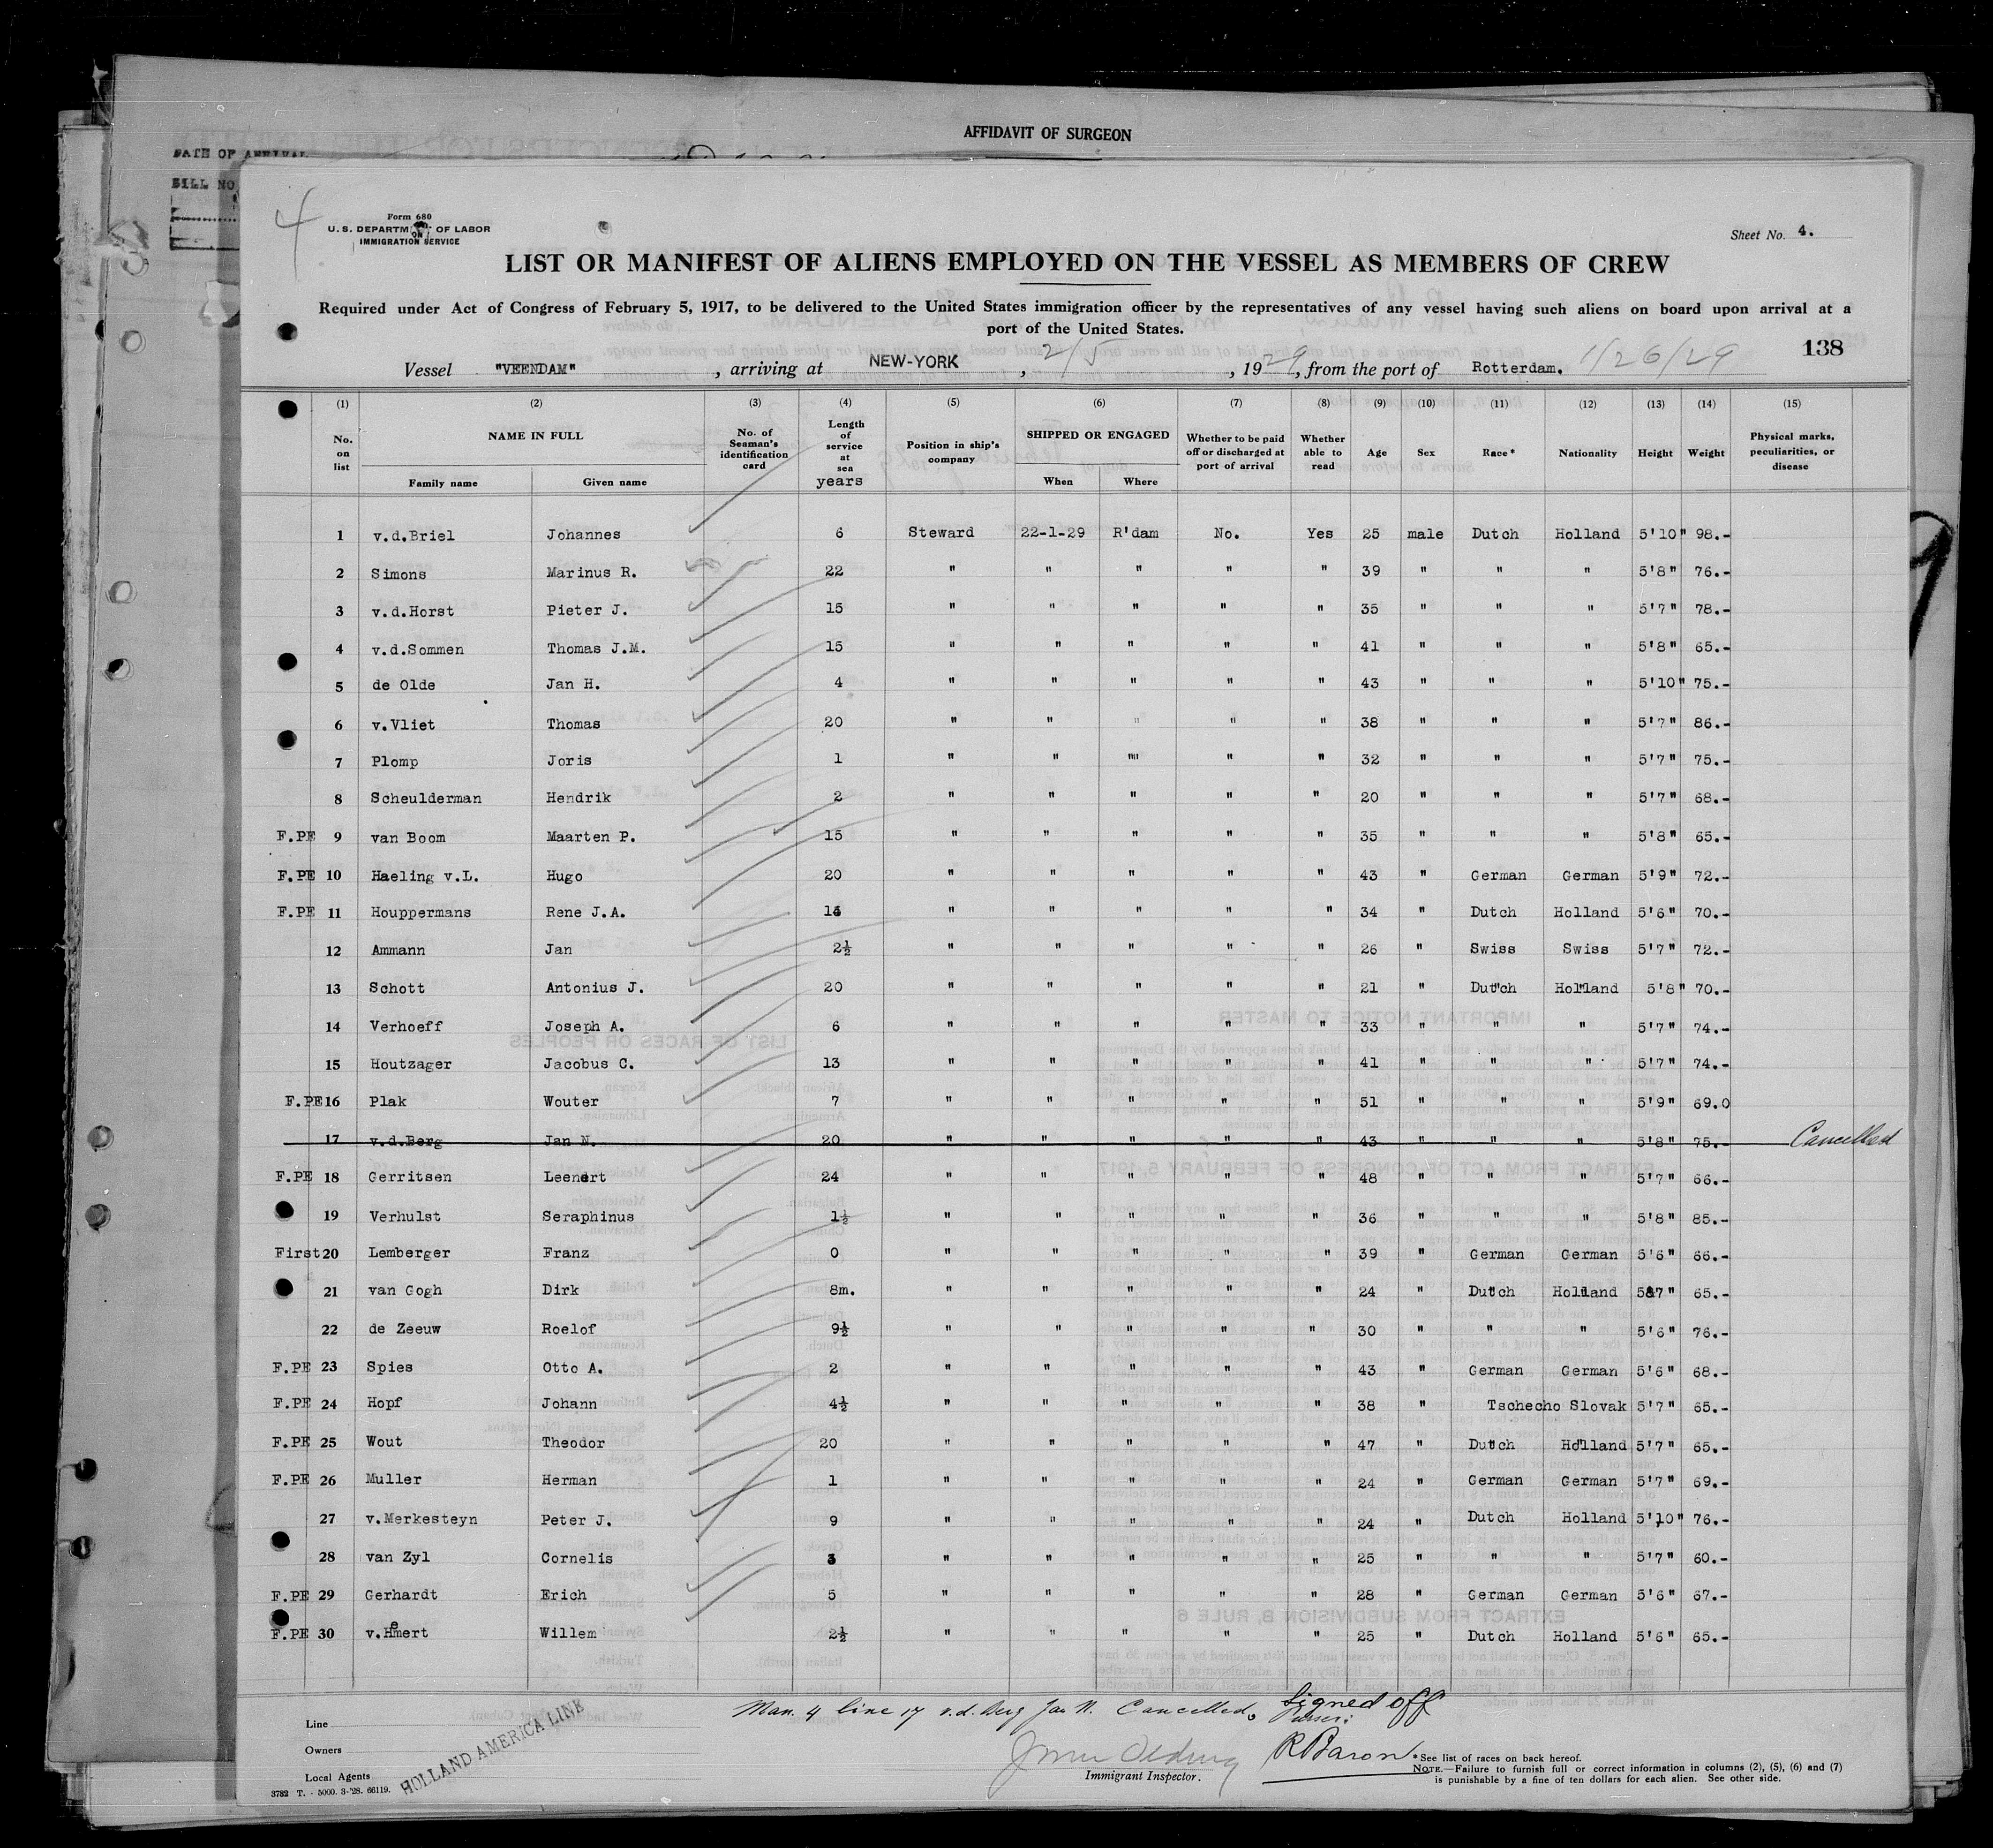 AFFIDAVIT OF SURGEON
DATE OF ARRIVAL
BILL NO
4
Form 680
U. S. DEPARTM OF LABOR
IMMIGRATION SERVICE
Sheet No. 4.
LIST OR MANIFEST OF ALIENS EMPLOYED ON THE VESSEL AS MEMBERS OF CREW
Required under Act of Congress of February 5, 1917, to be delivered to the United States immigration officer by the representatives of any vessel having such aliens on board upon arrival at a
port of the United States.
138
Vessel "VEENDAM" , arriving at NEW-YORK , 2/5 , 1929, from the port of Rotterdam. 1/26/29
(1) (2) (3) (4) (5) (6) (7) (8) (9) (10) (11) (12) (13) (14) (15)
No. on list NAME IN FULL Family name Given name No. of Seaman's identification card Length of service at sea years Position in ship's company SHIPPED OR ENGAGED When Where Whether to be paid off or discharged at port of arrival Whether able to read Age Sex Race* Nationality Height Weight Physical marks, peculiarities, or disease
1 v.d.Briel Johannes 6 Steward 22-1-29 R'dam No. Yes 25 male Dutch Holland 5'10" 98.-
2 Simons Marinus R. 22 " " " " " 39 " " " 5'8" 76.-
3 v.d.Horst Pieter J. 15 " " " " " 35 " " " 5'7" 78.-
4 v.d.Sommen Thomas J.M. 15 " " " " " 41 " " " 5'8" 65.-
5 de Olde Jan H. 4 " " " " " 43 " " " 5'10" 75.-
6 v.Vliet Thomas 20 " " " " " 38 " " " 5'7" 86.-
7 Plomp Joris 1 " " " " " 32 " " " 5'7" 75.-
8 Scheulderman Hendrik 2 " " " " " 20 " " " 5'7" 68.-
F.PE 9 van Boom Maarten P. 15 " " " " " 35 " " " 5'8" 65.-
F.PE 10 Haeling v.L. Hugo 20 " " " " " 43 " German German 5'9" 72.-
F.PE 11 Houppermans Rene J.A. " " " " " 34 " Dutch Holland 5'6" 70.-
12 Ammann Jan 2½ " " " " " 26 " Swiss Swiss 5'7" 72.-
13 Schott Antonius J. 20 " " " " " 21 " Dutch Holland 5'8" 70.-
14 Verhoeff Joseph A. 6 " " " " " 33 " " " 5'7" 74.-
15 Houtzager Jacobus C. 13 " " " " " 41 " " " 5'7" 74.-
F.PE 16 Plak Wouter 7 " " " " " 51 " " " 5'9" 69.0
17 v.d.Berg Jan N. 20 " " " " " 43 " " " 5'8" 75.- Cancelled
F.PE 18 Gerritsen Leenert 24 " " " " " 48 " " " 5'7" 66.-
19 Verhulst Seraphinus 1½ " " " " " 36 " " " 5'8" 85.-
First 20 Lemberger Franz 0 " " " " " 39 " German German 5'6" 66.-
21 van Gogh Dirk 8m. " " " " " 24 " Dutch Holland 5'7" 65.-
22 de Zeeuw Roelof 9½ " " " " " 30 " " " 5'6" 76.-
F.PE 23 Spies Otto A. 2 " " " " " 43 " German German 5'6" 68.-
F.PE 24 Hopf Johann 4½ " " " " " 38 " Tschecho Slovak 5'7" 65.-
F.PE 25 Wout Theodor 20 " " " " " 47 " Dutch Holland 5'7" 65.-
F.PE 26 Muller Herman 1 " " " " " 24 " German German 5'7" 69.-
27 v.Merkesteyn Peter J. 9 " " " " " 24 " Dutch Holland 5'10" 76.-
28 van Zyl Cornelis 3 " " " " " 25 " " " 5'7" 60.-
F.PE 29 Gerhardt Erich 5 " " " " " 28 " German German 5'6" 67.-
F.PE 30 v.Hemert Willem 2½ " " " " " 25 " Dutch Holland 5'6" 65.-
Man. 4 line 17 v.d. Berg Jan N. Cancelled. Signed off
Purser:
Line
Owners
Local Agents
HOLLAND AMERICA LINE
RBaron
Immigrant Inspector.
*See list of races on back hereof.
NOTE.—Failure to furnish full or correct information in columns (2), (5), (6) and (7)
is punishable by a fine of ten dollars for each alien. See other side.
3782 T. - 5000. 3-'28. 66119.